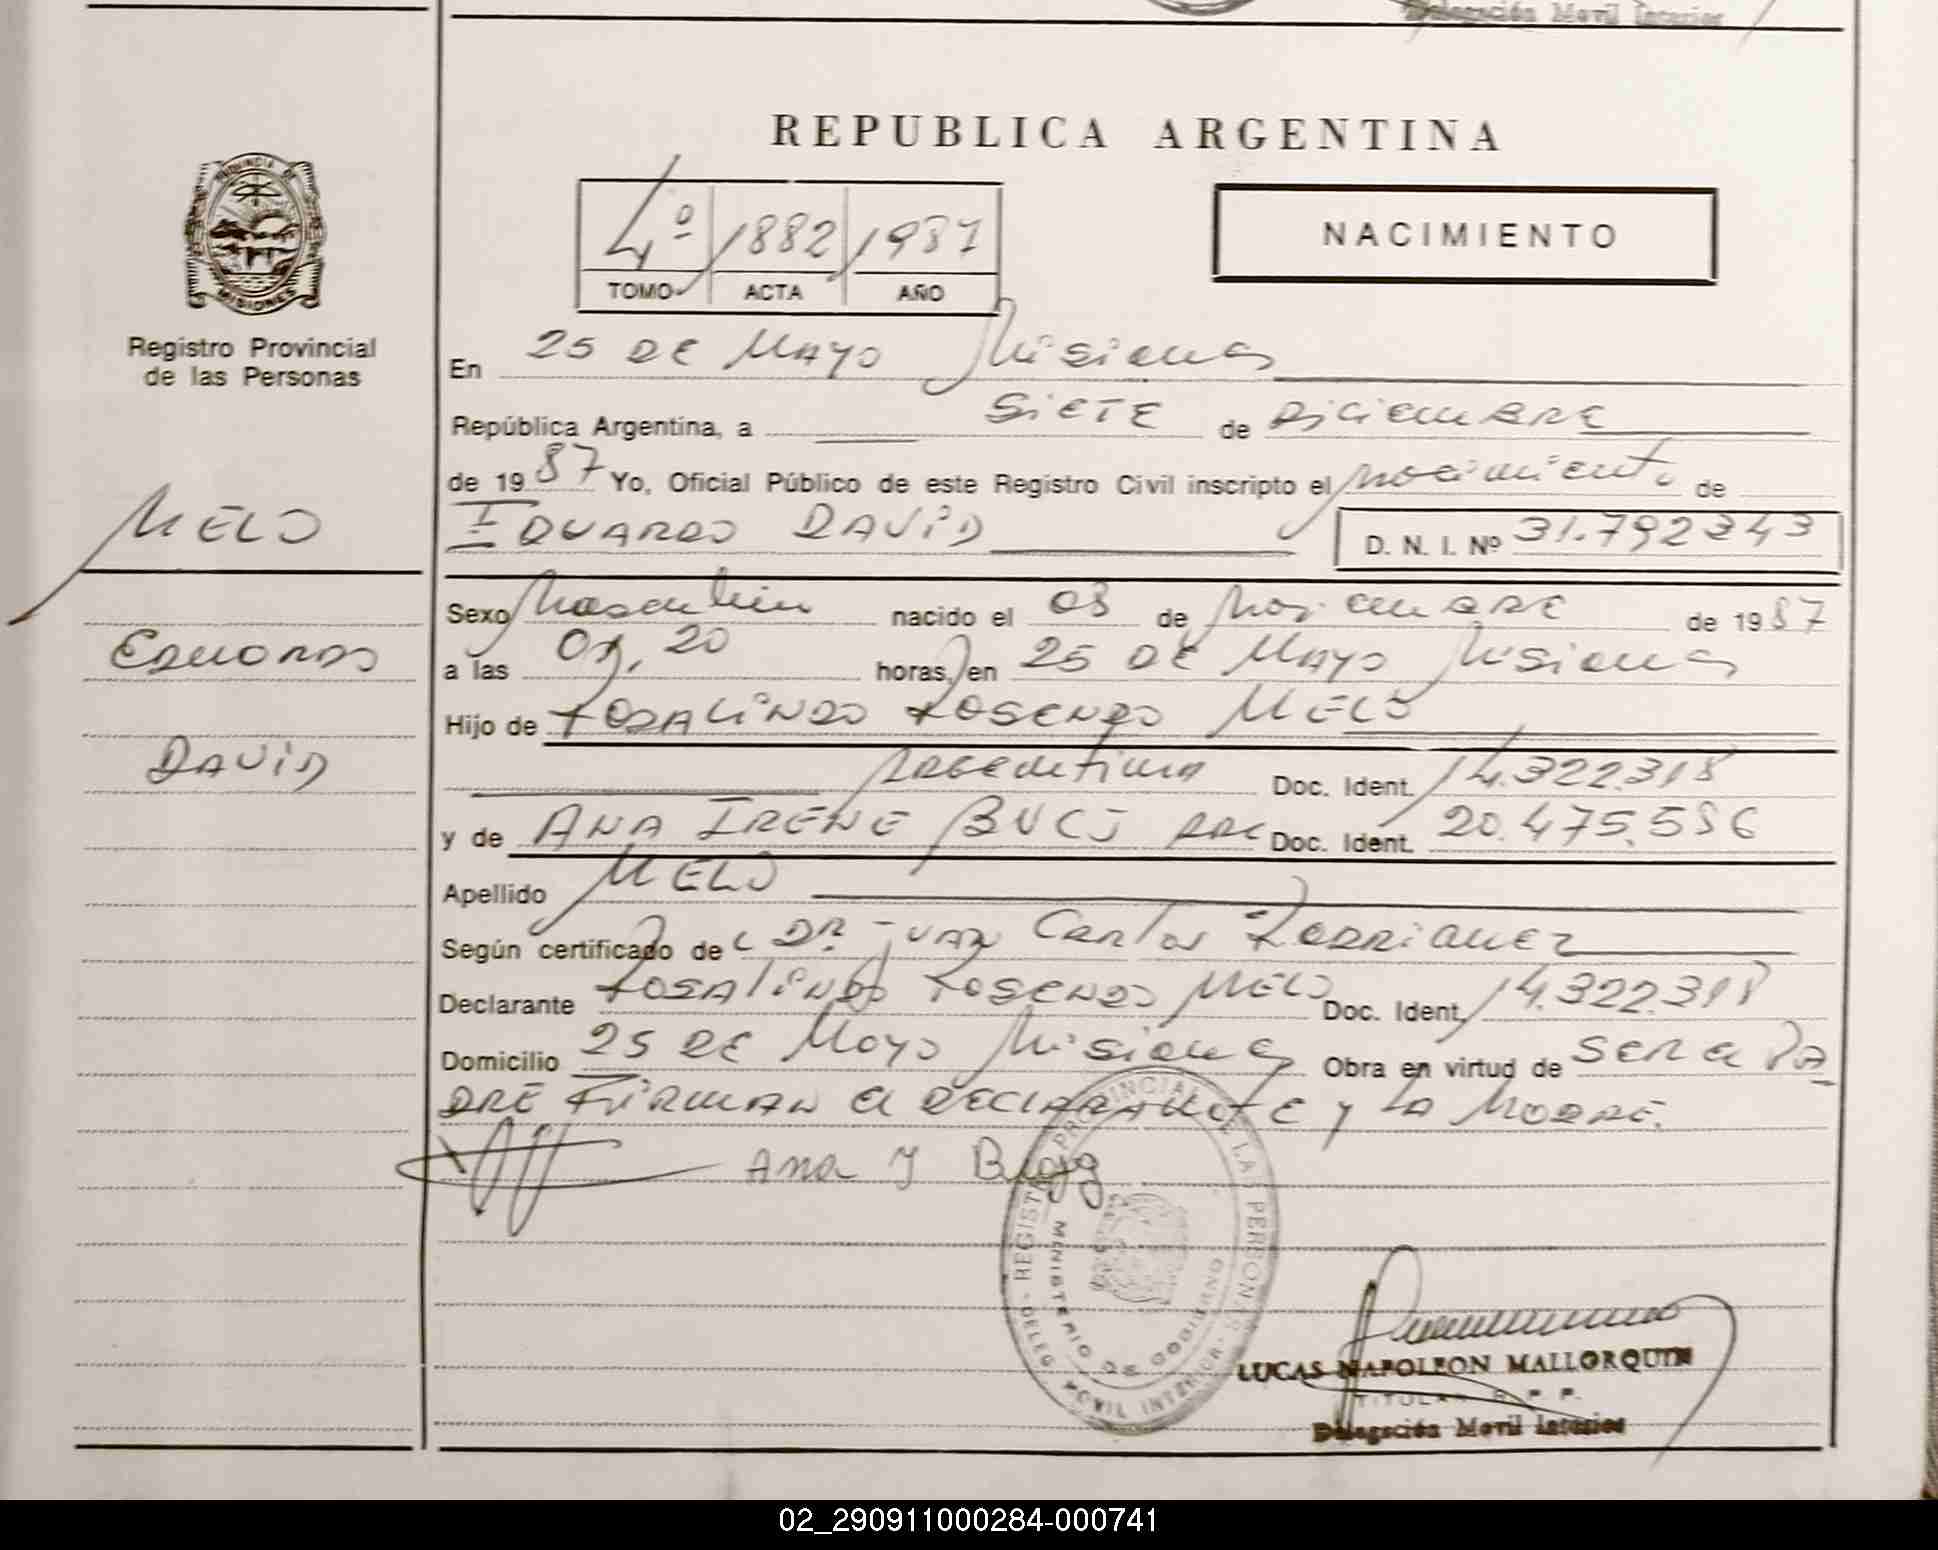 Delegación Movil Interior
REPUBLICA ARGENTINA
PROVINCIA DE
MISIONES
Registro Provincial
de las Personas
4º 1882 1987
TOMO ACTA AÑO
NACIMIENTO
En 25 DE MAYO Misiones
República Argentina, a SIETE de Diciembre
de 1987 Yo, Oficial Público de este Registro Civil inscripto el nacimiento de
MELO
EDUARDO DAVID D. N. I. Nº 31.792343
Sexo Masculino nacido el 08 de Noviembre de 1987
EDUARDO
a las 20 horas, en 25 DE MAYO Misiones
Hijo de ROSALINDO ROSENDO MELO
DAVID
Argentina Doc. Ident. 14.322.318
y de ANA IRENE Doc. Ident. 20.475.586
Apellido MELO
Según certificado de DR. JUAN Carlos
Declarante ROSALINDO ROSENDO MELO Doc. Ident. 14.322.318
Domicilio 25 DE MAYO Misiones Obra en virtud de SER el PA
DRE FIRMAN el DECLARANTE y LA MADRE.
Ana
REGISTRO PROVINCIAL DE LAS PERSONAS - DELEG. MOVIL INTERIOR
MINISTERIO DE GOBIERNO
LUCAS NAPOLEON MALLORQUIN
TITULAR R. P. P.
Delegación Movil Interior
02_290911000284-000741